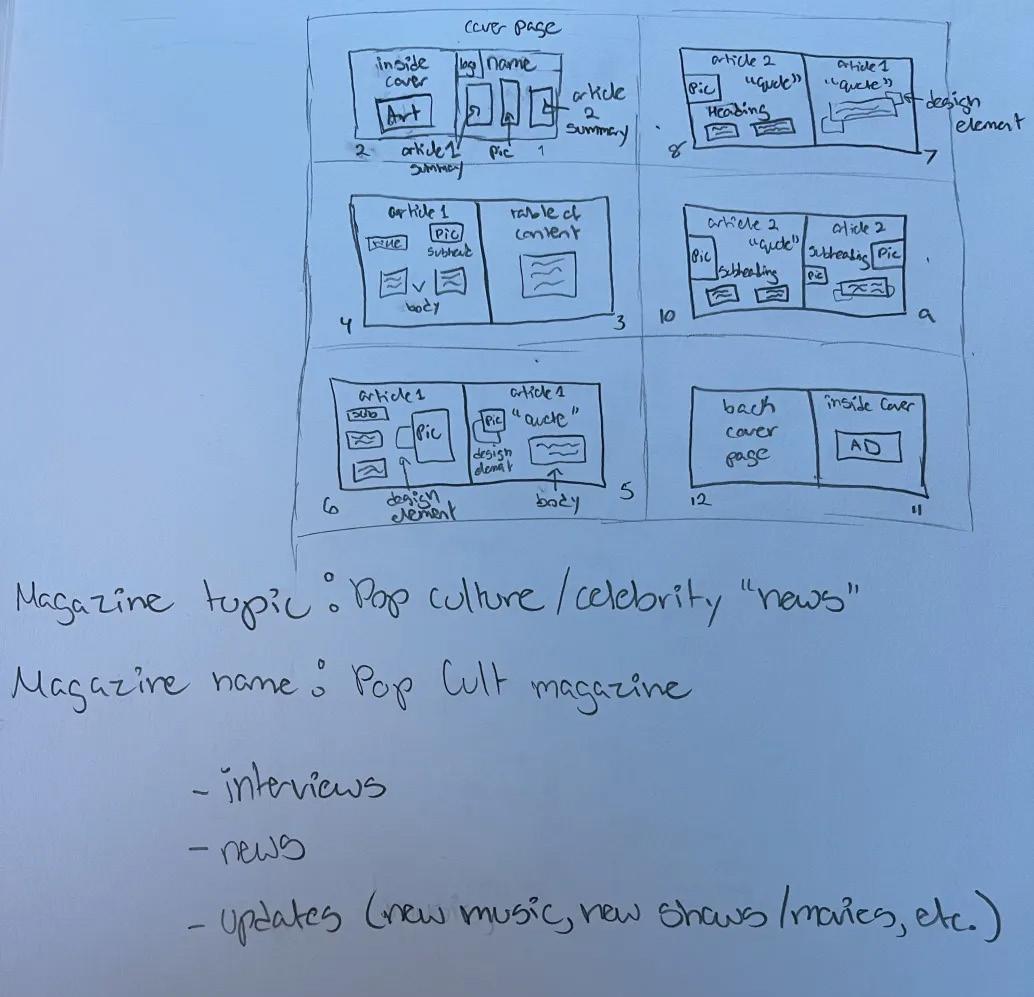 cover page
inside
cover
Art
logo
name
article
2
summary
2
article 1
summary
pic
1
article 2
Pic
"quote"
Heading
8
article 1
"quote"
design
element
7
article 1
title
Pic
Subhead
body
4
table of
content
3
article 2
Pic
"quote"
Subheading
10
article 2
Subheading
Pic
Pic
9
article 1
sub
Pic
design
element
6
article 1
Pic
"quote"
design
elemat
body
5
back
cover
page
12
inside cover
AD
11
Magazine topic : Pop culture/celebrity "news"
Magazine name : Pop Cult magazine
- interviews
- news
- updates (new music, new shows/movies, etc.)